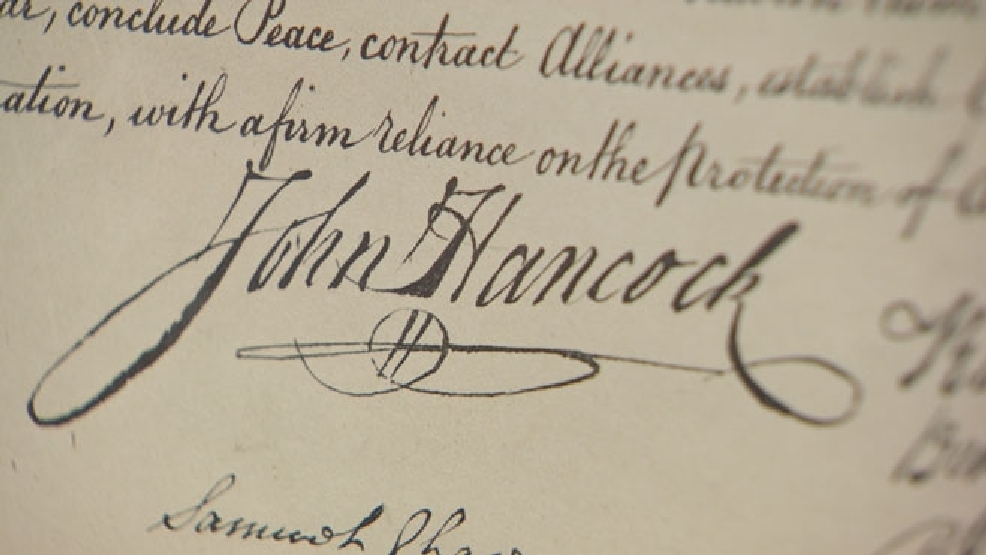 ar, conclude Peace, contract Alliances, establish
ation, with a firm reliance on the Protection of
John Hancock
Samuel Chase